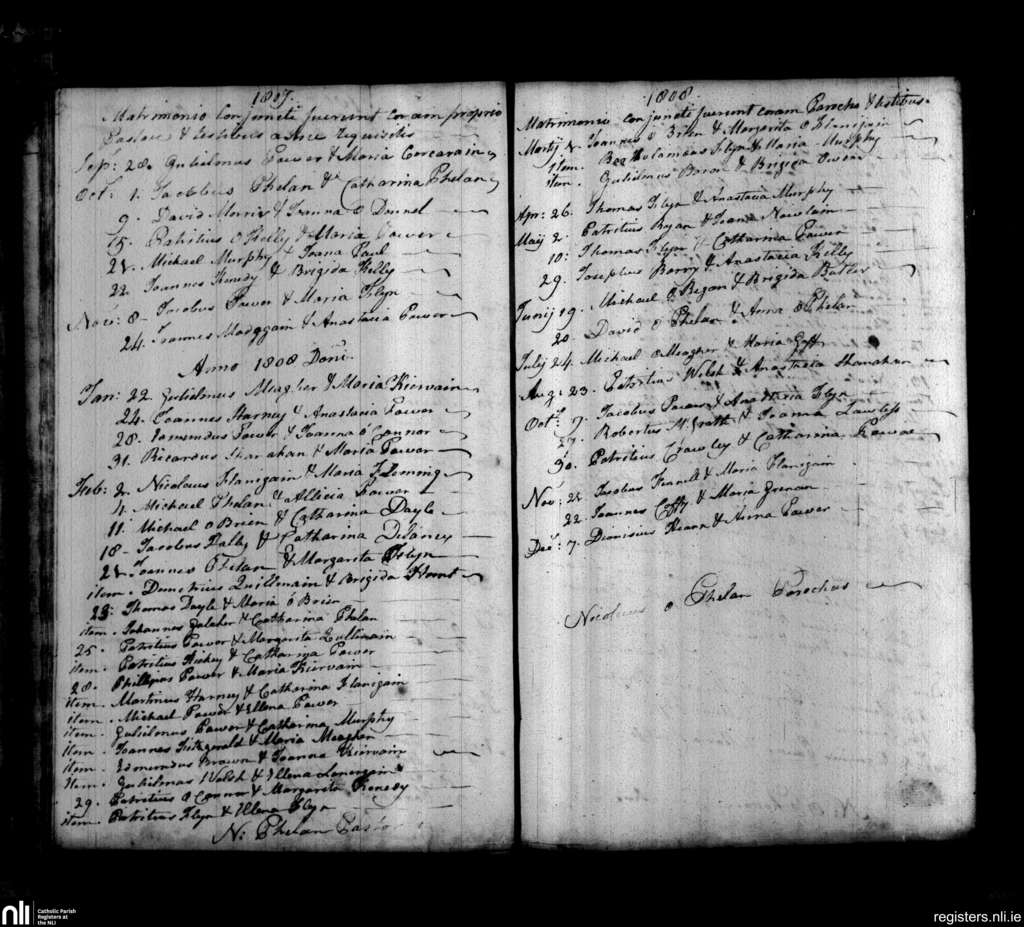 1807.
Matrimonio Conjuncti fuerunt coram proprio
Pastore & testibus a
Sep: 28. Gulielmus Power & Maria Corcarain
Oct: 1. Jacobus Phelan & Catharina Phelan
9. David Morris & Joanna O Donnel
15. Patritius O Kelly & Maria Power
21. Michael Murphy & Joana Paul
22. Joannes Kenedy & Brigida Kelly
Nov: 8 Jacobus Power & Maria Flyn
24. Joannes & Anastacia Power
Anno 1808 Doni.
Jan: 22. Gulielmus Meagher & Maria Kiervain
24. Joannes Harney & Anastacia Power
28. Power & Joanna O Connor
31. Ricardus & Maria Power
Feb: 2. Nicolaus Flanigain & Maria Flemming
4. Michael Phelan & Allicia Power
11. Michael O Brien & Catharina Dayle
18 Jacobus Dalby & Catharina Delaney
21. Joannes O Felan & Margarita Flyn
item. Demetrius Quillinain & Brigida Hunt
23. Thomas Dayle & Maria O Brien
item. Johannes & Catharina Phelan
25. Patritius Power & Margarita Quillinain
item. Patritius Hickey & Catharina Power
28. Phillipus Power & Maria Kiervain
item. Martinus Harney & Catharina Flanigain
item. Michael Power & Ellena Power
item. Gulielmus Power & Catharina Murphy
item. Joannes Fitzgerald & Maria Meagher
item. Edmundus Brown & Joanna Kiervain
item. Gulielmus Walsh & Ellena Lanergain
29. Patritius O Connor & Margarita Kenedy
item. Patritius Flyn & Ellena Flyn
N: Phelan Pastor
1808
Matrimonio conjuncti fuerunt coram Parocho & testibus.
Martij Joannes O Brien & Margarita O Flanigain
item. Bartholameus Flyn & Maria Murphy
item. Gulielmus Baron & Brigida
Apr: 26. Thomas Flyn & Anastacia Murphy
Maij 2. Patritius Ryan & Joana
10: Thomas Flyn & Catharina Power
29. Josephus Berry & Anastacia Kelly
Junij 19. Michael O Regan & Brigida Butler
20. David O Phelan & Anna O Phelan
July 24. Michael O Meagher & Maria Goff
Aug: 23. Patritius Welsh & Anastacia Shanahan
Oct. 7. Jacobus Power & Anastacia Flyn
27. Robertus McGrath & Joanna Lawless
30. Patritius Crawley & Catharina Power
Nov: 21 Jacobus Fennell & Maria Flanigain
22. Joannes & Maria
Dec: 7. Dionisius & Anna Power
Nicolaus O Phelan Parochus
nli
Catholic Parish
Registers at
the NLI
registers.nli.ie